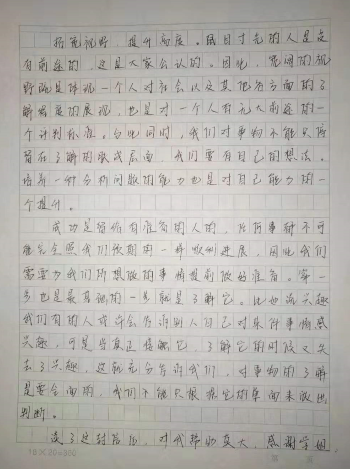 拓宽视野,提升高度。鼠目寸光的人是没
有前途的,这是大家公认的。因此,宽阔的视
野既是体现一个人对社会以及其他各方面的了
解程度的展现,也是对一个人有无大前途的一
个评判标准。与此同时,我们对事物不能只停
留在了解的层面,我们要有自己的想法。
培养一种分析问题的能力也是对自己能力的一
个提升。
成功是留给有准备的人的,任何事都不可
能完全照我们预期的一样顺利进展,因此我们
需要为我们所想做的事情提前做好准备。第一
步也是最基础的一步就是了解它。比如说兴趣
我们有的人或许会告诉别人自己对某件事情感
兴趣,可是当真正接触它,了解它的时候又失
去了兴趣,这就充分告诉我们,对事物的了解
是要全面的,我们不能只根据它的单面来做出
判断。
读了这封信后,对我帮助莫大,感谢学姐
18×20=360